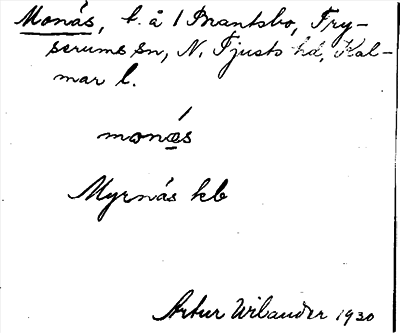 Monås, t. å 1 Prantsbo, Try-
serums sn, N. Tjusts hd, Kal-
mar l.
monås
Myrnås kb
Artur Wilander 1930